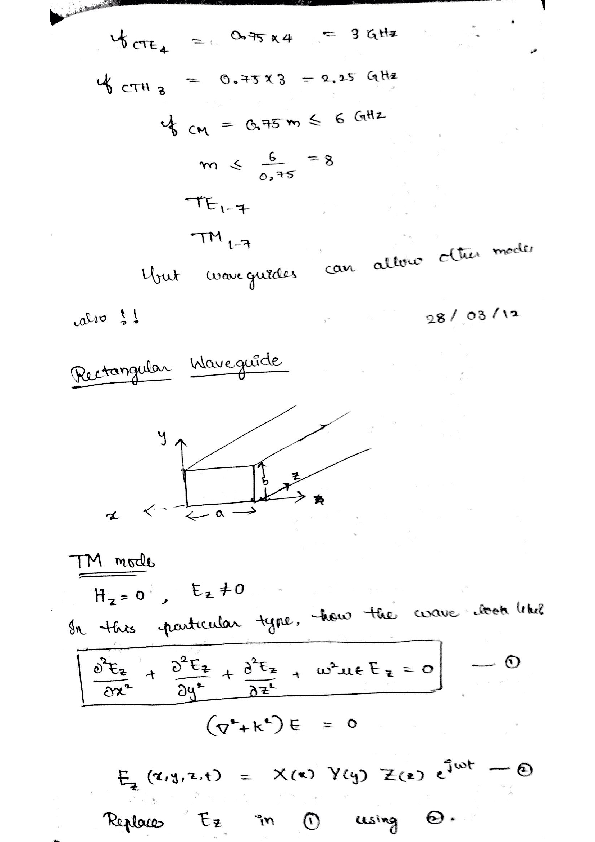 f CTE4 = 0.75 x 4 = 3 GHz
f CTM 3 = 0.75 x 3 = 2.25 GHz
f CM = 0.75 m ≤ 6 GHz
m ≤ 6/0.75 = 8
TE 1-7
TM 1-7
but waveguides can allow other modes
also !!
28/03/12
Rectangular Waveguide
y
b
z
x
a
TM mode
Hz = 0 , Ez ≠ 0
In this particular type, how the wave look like?
∂²Ez/∂x² + ∂²Ez/∂y² + ∂²Ez/∂z² + ω²μϵ Ez = 0 — ①
(∇² + k²) E = 0
Ez (x,y,z,t) = X(x) Y(y) Z(z) e^jωt — ②
Replace Ez in ① using ②.